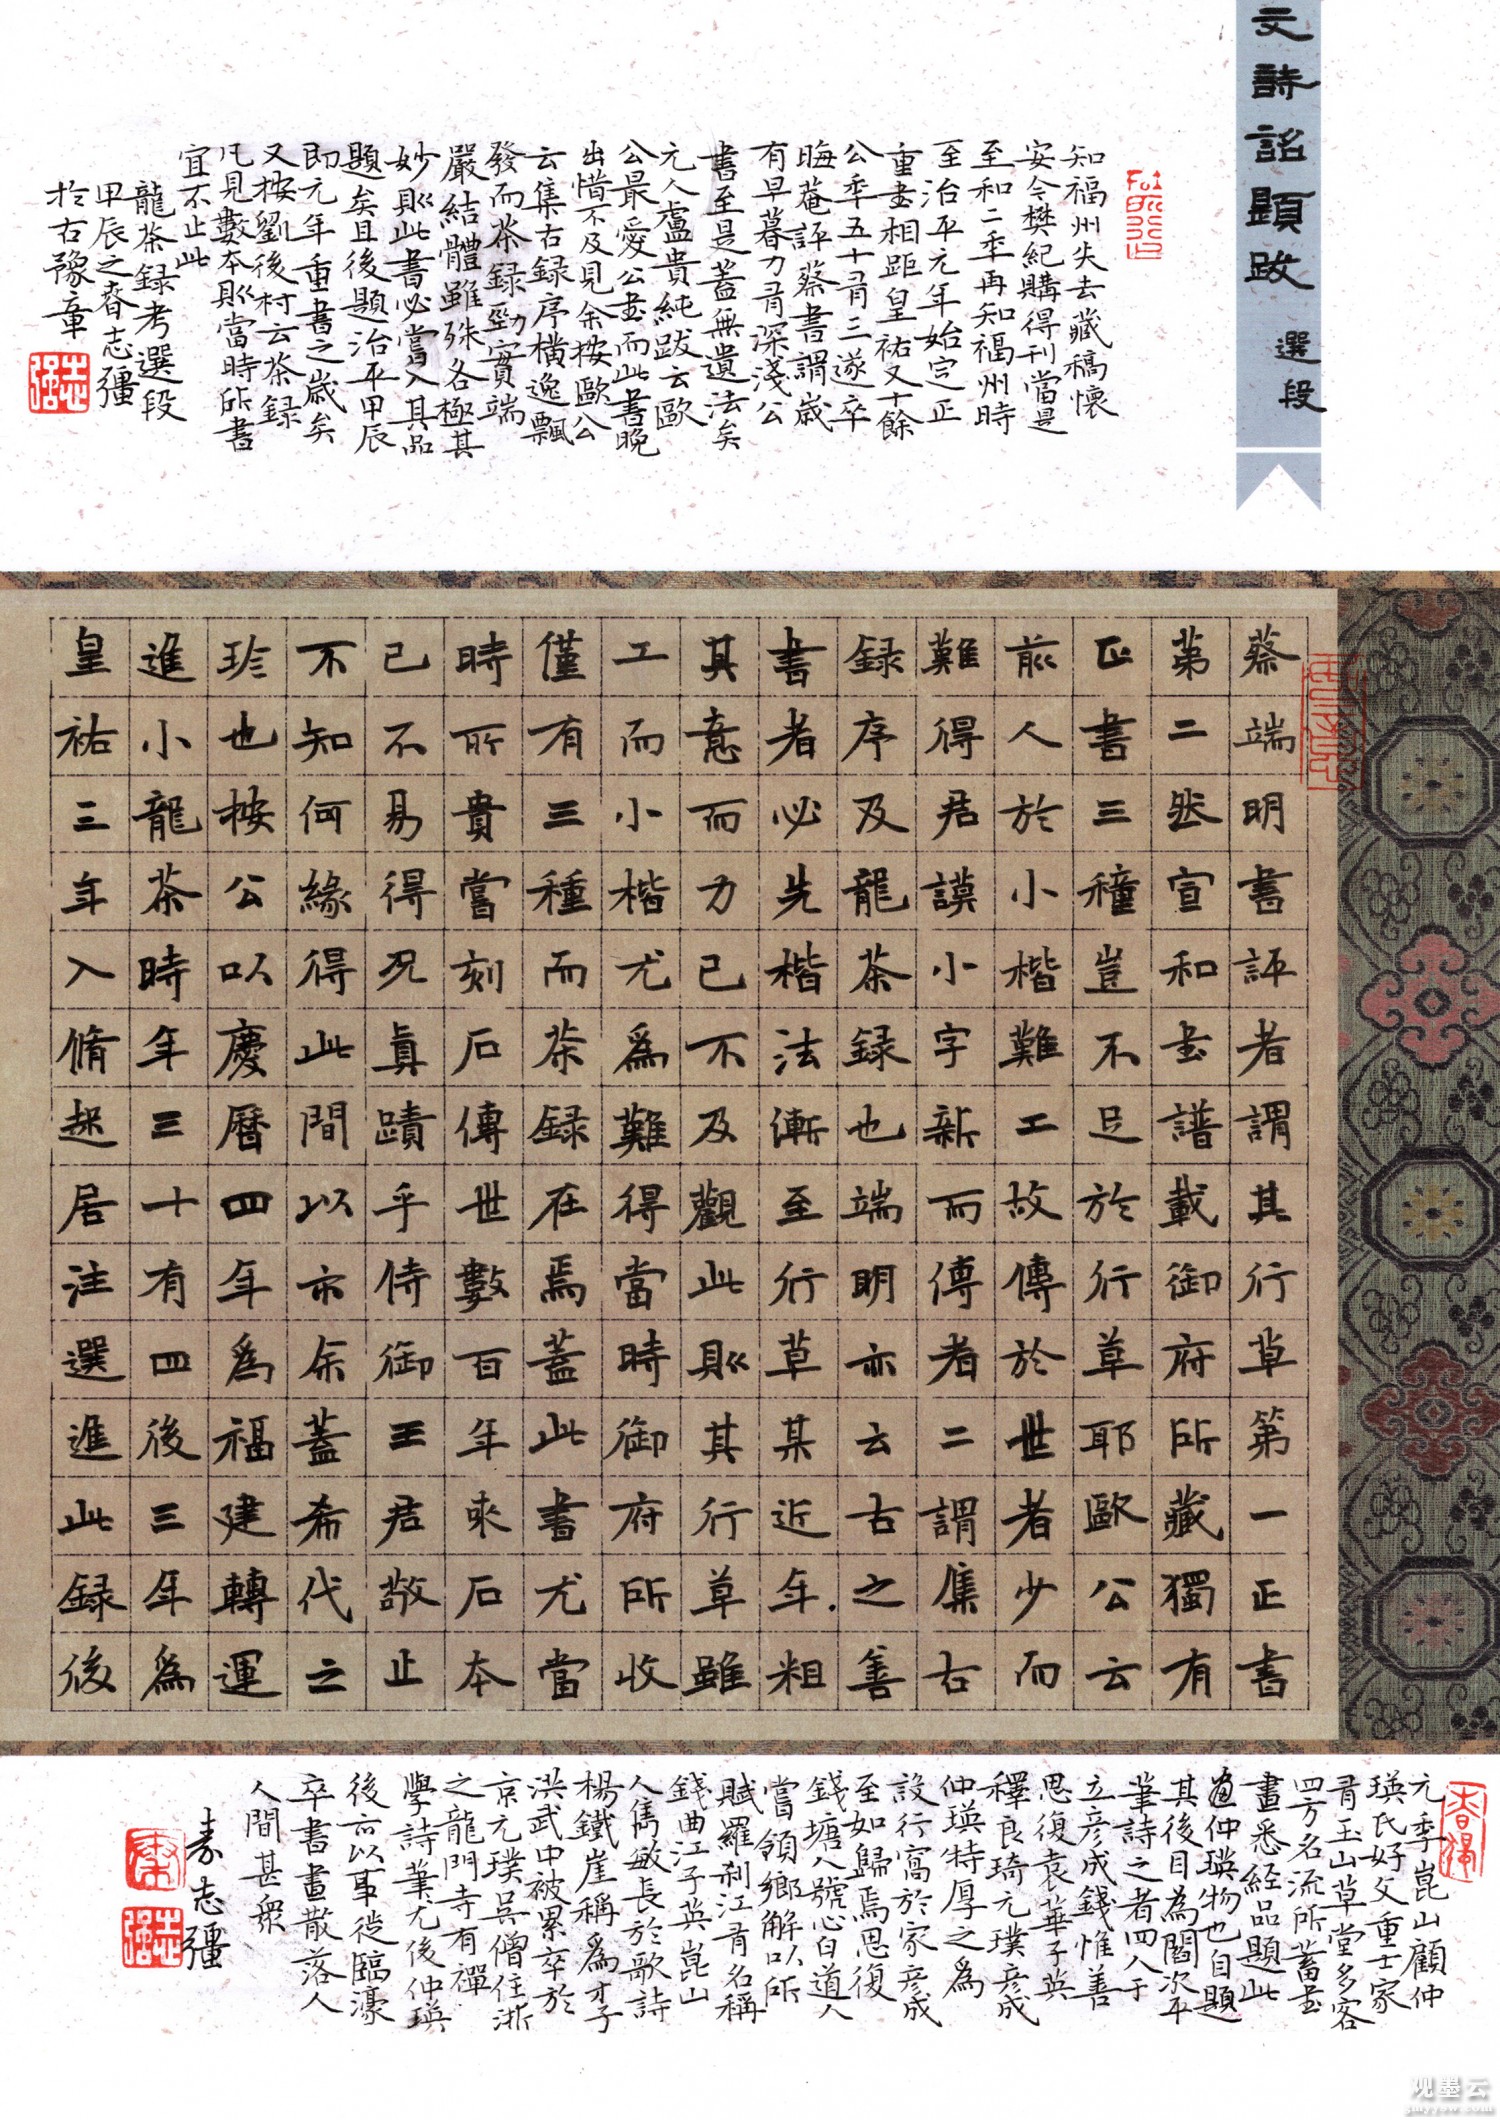 文詩詔題跋 選段
知福州失去藏稿懷
安令樊紀購得刊當是
至和二年再知福州時
至治平元年始定正
重書相距皇祐又十餘
公年五十有三遂卒
晦菴評蔡書謂歲
有早暮力有深淺公
書至是蓋無遺法矣
元人盧貴純跋云歐
公最愛公書而此書晚
出惜不及見余按歐公
云集古録序橫逸飄
發而茶録勁實端
嚴結體雖殊各極其
妙則此書必嘗入其品
題矣且後題治平甲辰
即元年重書之歲矣
又按劉後村云茶録
凡見數本則當時所書
宜不止此
龍茶録考選段
甲辰之春志彊
於古豫章
蔡端明書評者謂其行草第一正書
第二然宣和書譜載御府所藏獨有
正書三種豈不足於行草耶歐公云
前人於小楷難工故傳於世者少而
難得君謨小字新而傳者二謂集古
録序及龍茶録也端明亦云古之善
書者必先楷法漸至行草某近年粗
其意而力已不及觀此則其行草雖
工而小楷尤爲難得當時御府所收
僅有三種而茶録在焉蓋此書尤當
時所貴嘗刻石傳世數百年來石本
已不易得況真蹟乎侍御王君敬止
不知何緣得此間以示余蓋希代之
珍也按公以慶曆四年爲福建轉運
進小龍茶時年三十有四後三年爲
皇祐三年入脩起居注選進此録後
元季崑山顧仲
瑛氏好父重士家
有玉山草堂多客
四方名流所蓄書
畫悉經品題此
卷仲瑛物也自題
其後目為閣次平
筆詩之者四人于
立彥成錢惟善
思復袁華子英
釋良琦元璞彥成
仲瑛特厚之為
設行窩於家彥成
至如歸焉思復
錢塘人號心白道人
嘗領鄉解以所
賦羅刹江有名稱
錢曲江子英崑山
人雋敏長於歌詩
楊鐵崖稱為才子
洪武中被累卒於
京元璞吳僧住浙
之龍門寺有禪
學詩筆尤後仲瑛
後亦以事徙臨濠
卒書畫散落人
人間甚衆
秦志彊
观墨云
gmyyow.com